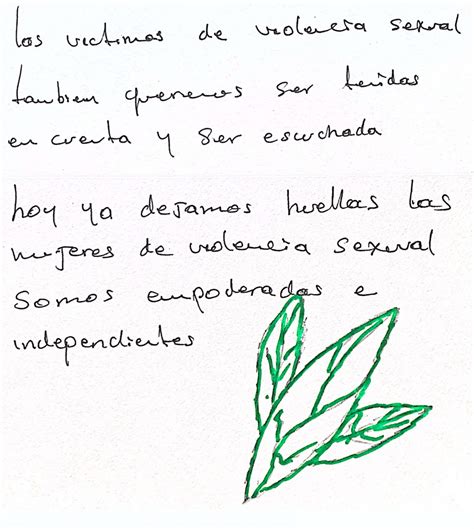 las victimas de violencia sexual
tambien queremos ser tenidas
en cuenta y ser escuchada
hoy ya dejamos huellas las
mujeres de violencia sexual
somos empoderadas e
independientes